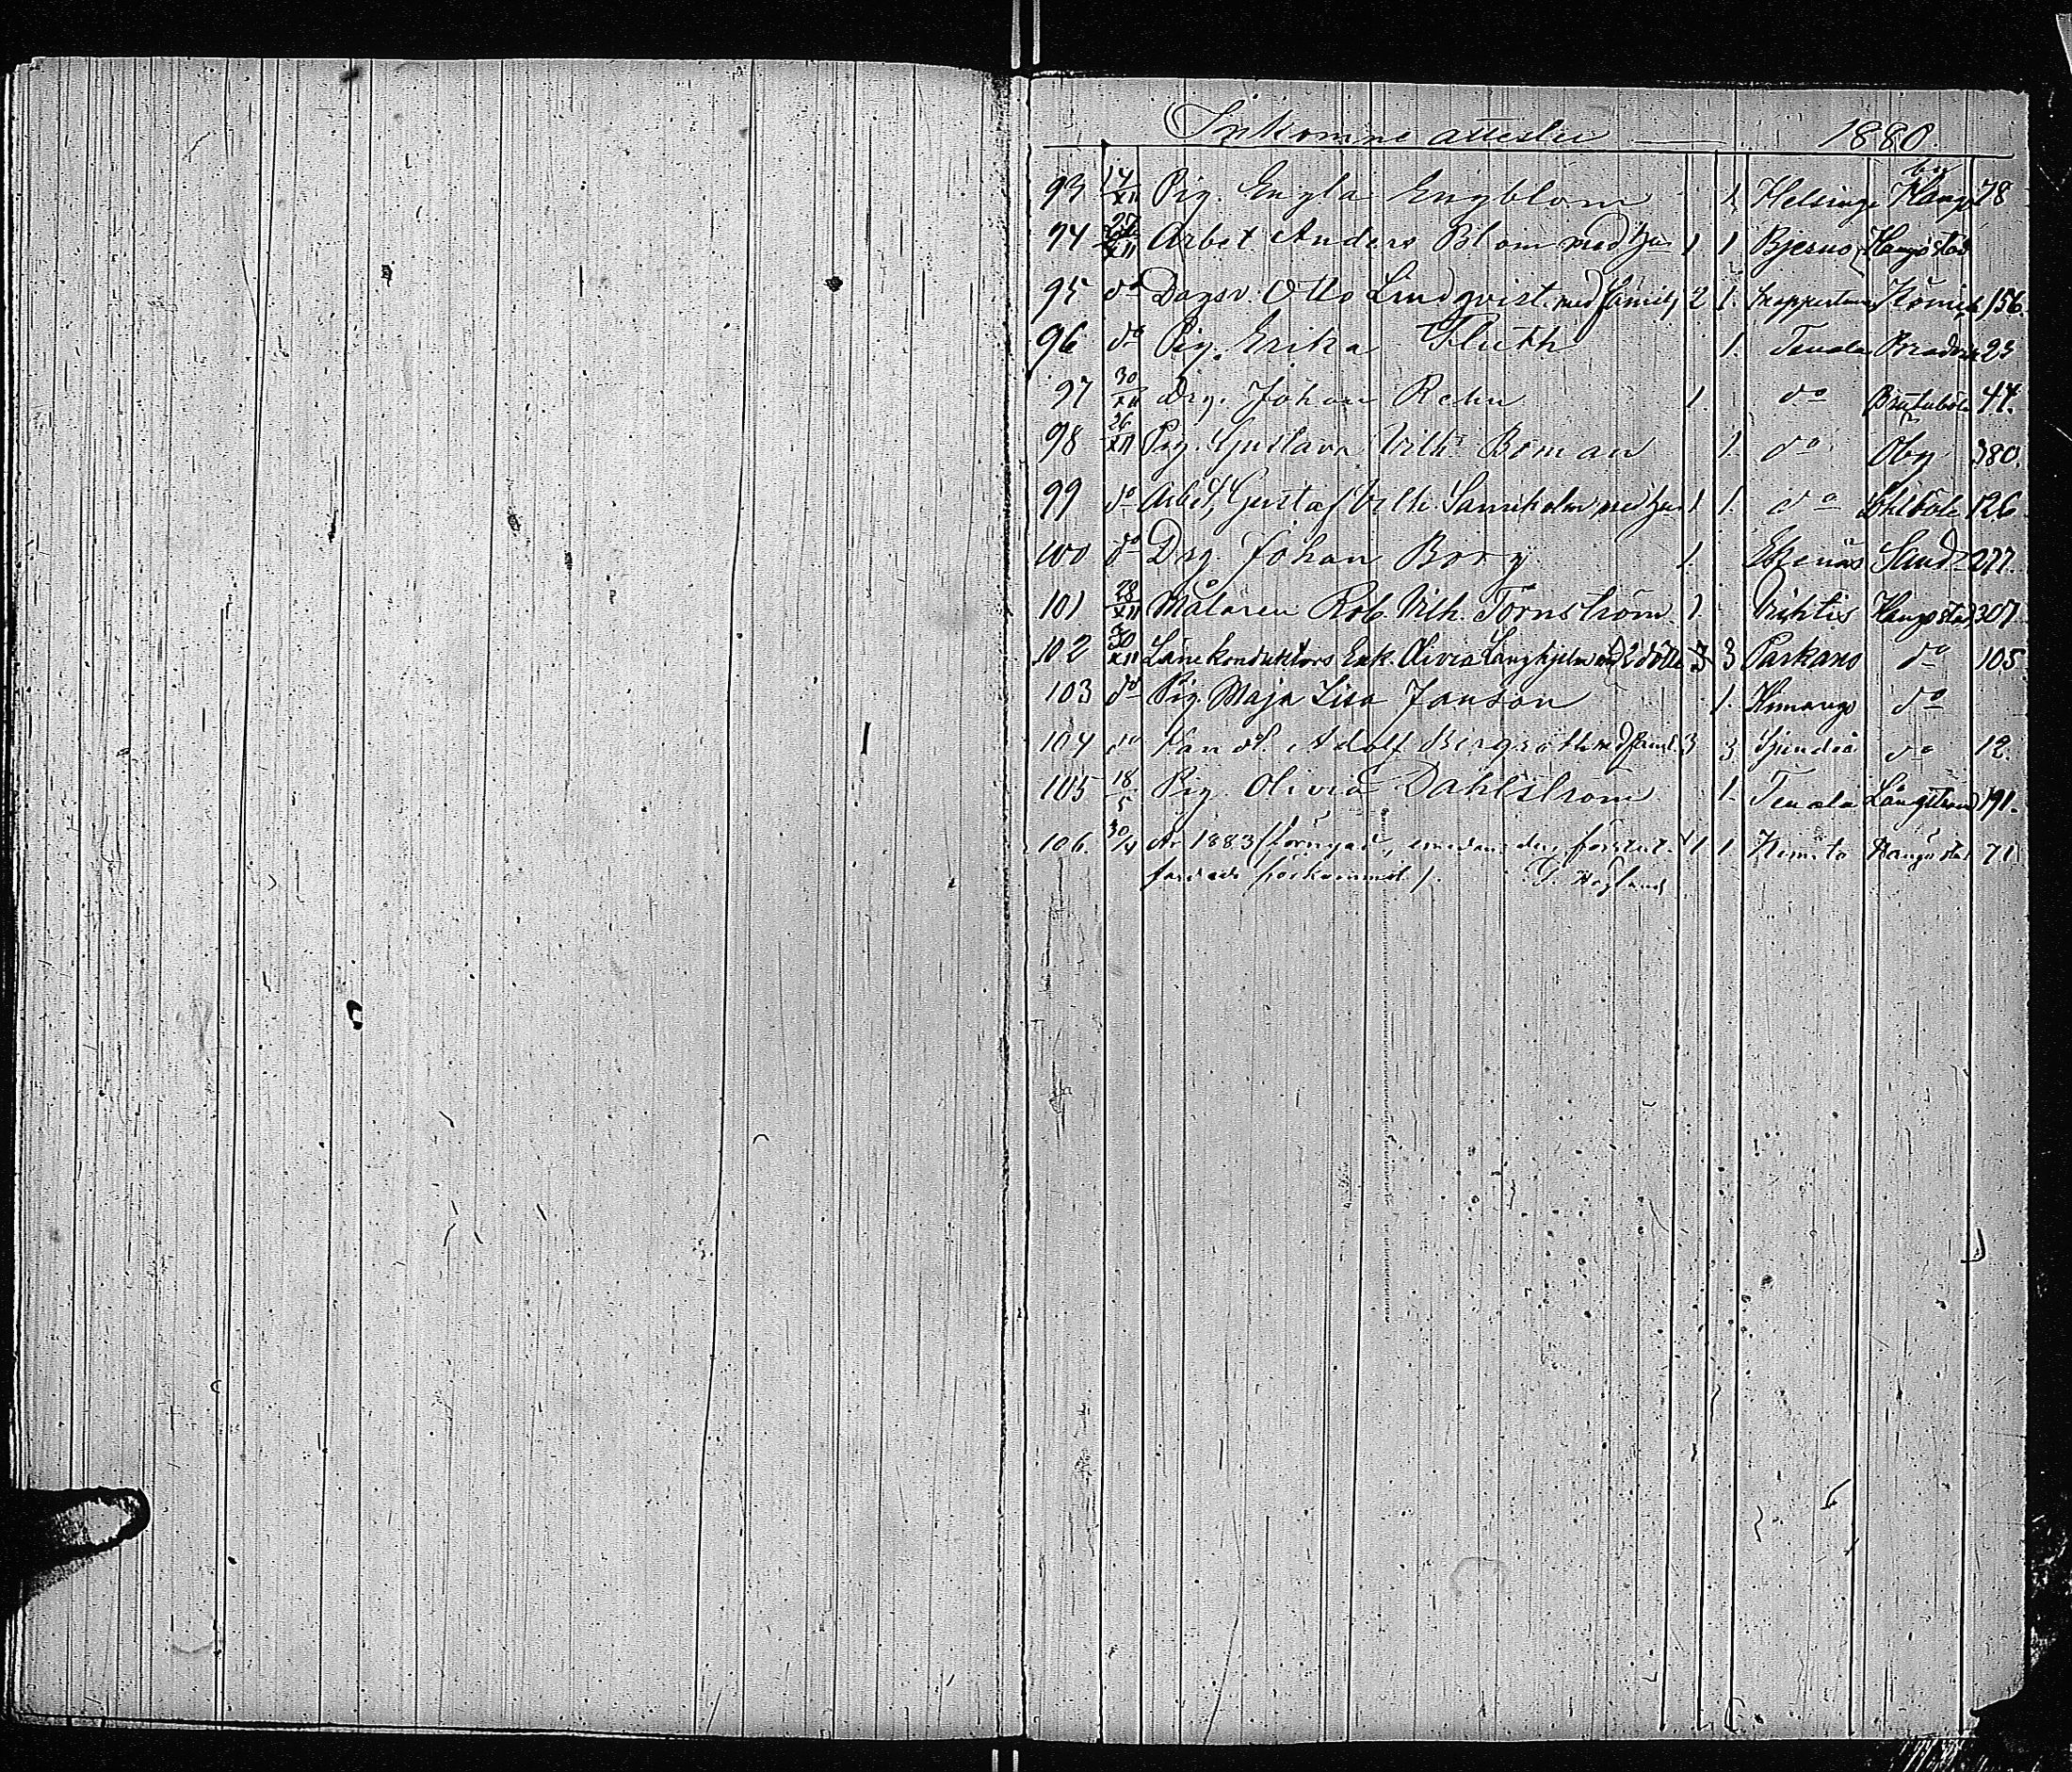 Inkomne attester 1880.
93 14/XII Pig. Engla Engblom 1. Helsinge Hangö by 78
94 XII Arbet Anders Blom med hu 1 1 Bjerno Hangö stad
95 do Dagsv. Otto Lindqvist med familj 2 1. 156.
96 do Pig. Erika Fluth 1. Tenala 23
97 30/XII Drg. Johan Rehn 1. do 44.
98 26/XII Pig. Gustava Vilh. Boman 1. do Öby 380.
99 do Arbet, Gustaf Vilh. med hu 1 1. do 126
100 do Drg. Johan Borg 1. Ekenäs Sand 277.
101 28/XII Målaren Rob. Vilh. Törnström. 1. Vichtis Hangö stad 307
102 30/XII Länekonduktors Enk. Olivia Langhjelm med 2 dött. 3 Parkano do 105
103 do Pig. Maja Lisa Janson 1. do
104 do Adolf Bergroth med famil. 3 3 Sjundeå do 12.
105 18/5 Pig. Olivia Dahlström 1. Tenala Långstrand 191.
106. 30/4 År 1883 (förnyad, emedan den förstut- 1 1 Kimito Hangö stad 71
färdade förkommit). Höglund